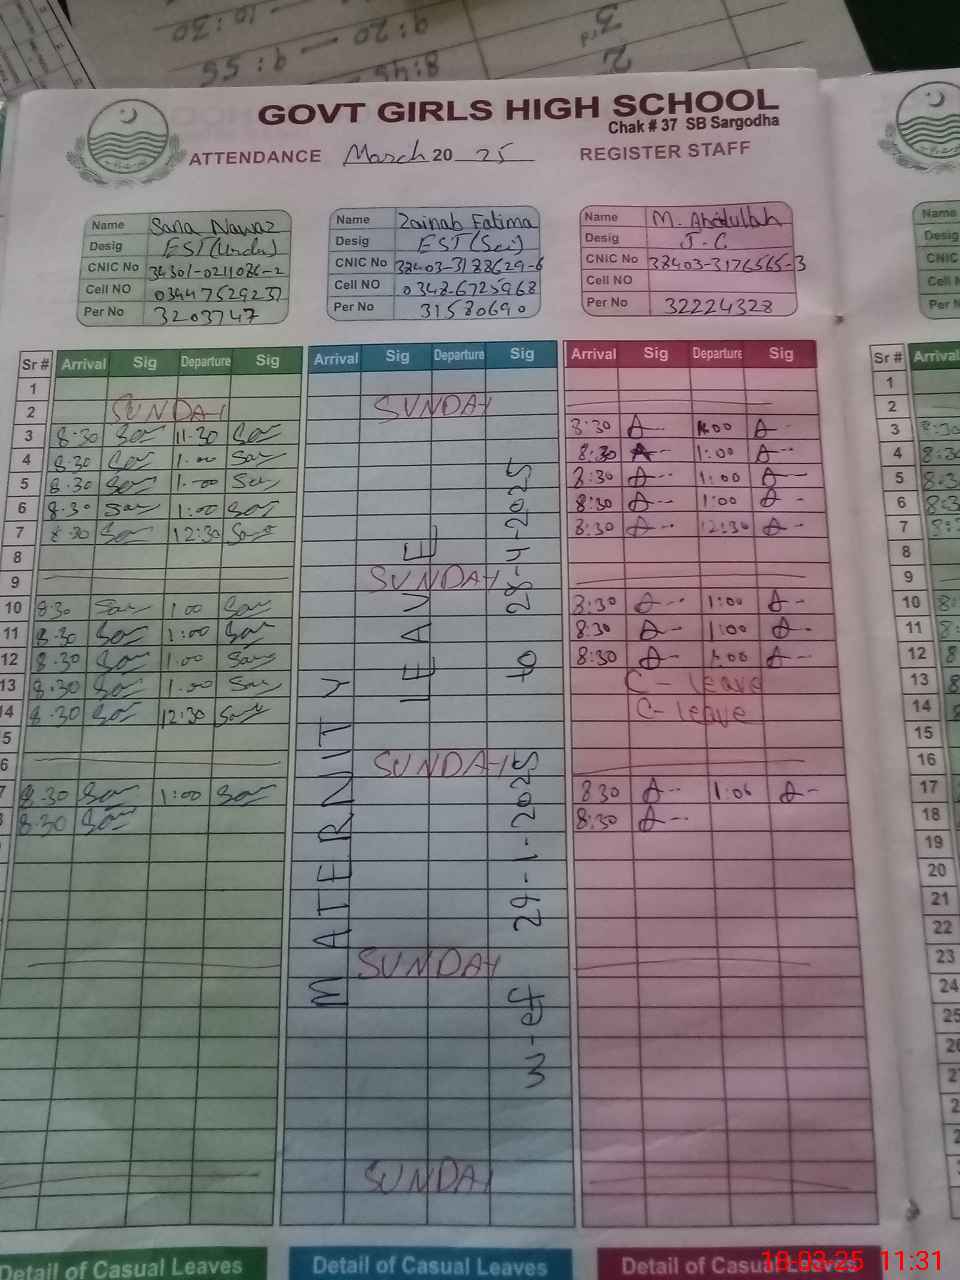 10:30
9:20
3rd
9:55
8:45
2
GOVT GIRLS HIGH SCHOOL
Chak # 37 SB Sargodha
ATTENDANCE March 20 25 REGISTER STAFF
Name Sana Nawaz
Desig EST(Urdu)
CNIC No
Cell NO
Per No 3203747
Name Zainab Fatima
Desig EST(Sci)
CNIC No 38403-3188629-6
Cell NO 0348-6725968
Per No 31580690
Name M. Abdullah
Desig J.C.
CNIC No 38403-3176565-3
Cell NO
Per No 32224328
Name
Desig
CNIC
Cell
Per N
Sr # Arrival Sig Departure Sig Arrival Sig Departure Sig Arrival Sig Departure Sig Sr # Arrival
1 1
2 SUNDAY SUNDAY 2
3 8-30 11-30 8:30 1:00 3 8:30
4 8-30 1.00 8:30 1:00 4 8:30
5 8.30 1.00 8:30 1:00 5 8:3
6 8.30 1:00 8:30 1:00 6 8:3
7 8.30 12:30 8:30 12:30 7 8:
8 8
9 SUNDAY 9
10 8:30 1:00 8:30 1:00 10 8:
11 8.30 1:00 8:30 1:00 11 8:
12 8.30 1.00 8:30 1:00 12 8
13 8.30 1.00 C-leave 13 8
14 8.30 12:30 C-leave 14
5 15
6 SUNDAY 16
7 8.30 1:00 8 30 1:06 17
8 8.30 8:30 18
19
20
21
22
SUNDAY 23
24
25
26
2
2
2
SUNDAY
MATERNITY LEAVE
w-ef 29-1-2025 to 28-4-2025
Detail of Casual Leaves Detail of Casual Leaves Detail of Casual Leaves
18-03-25 11:31